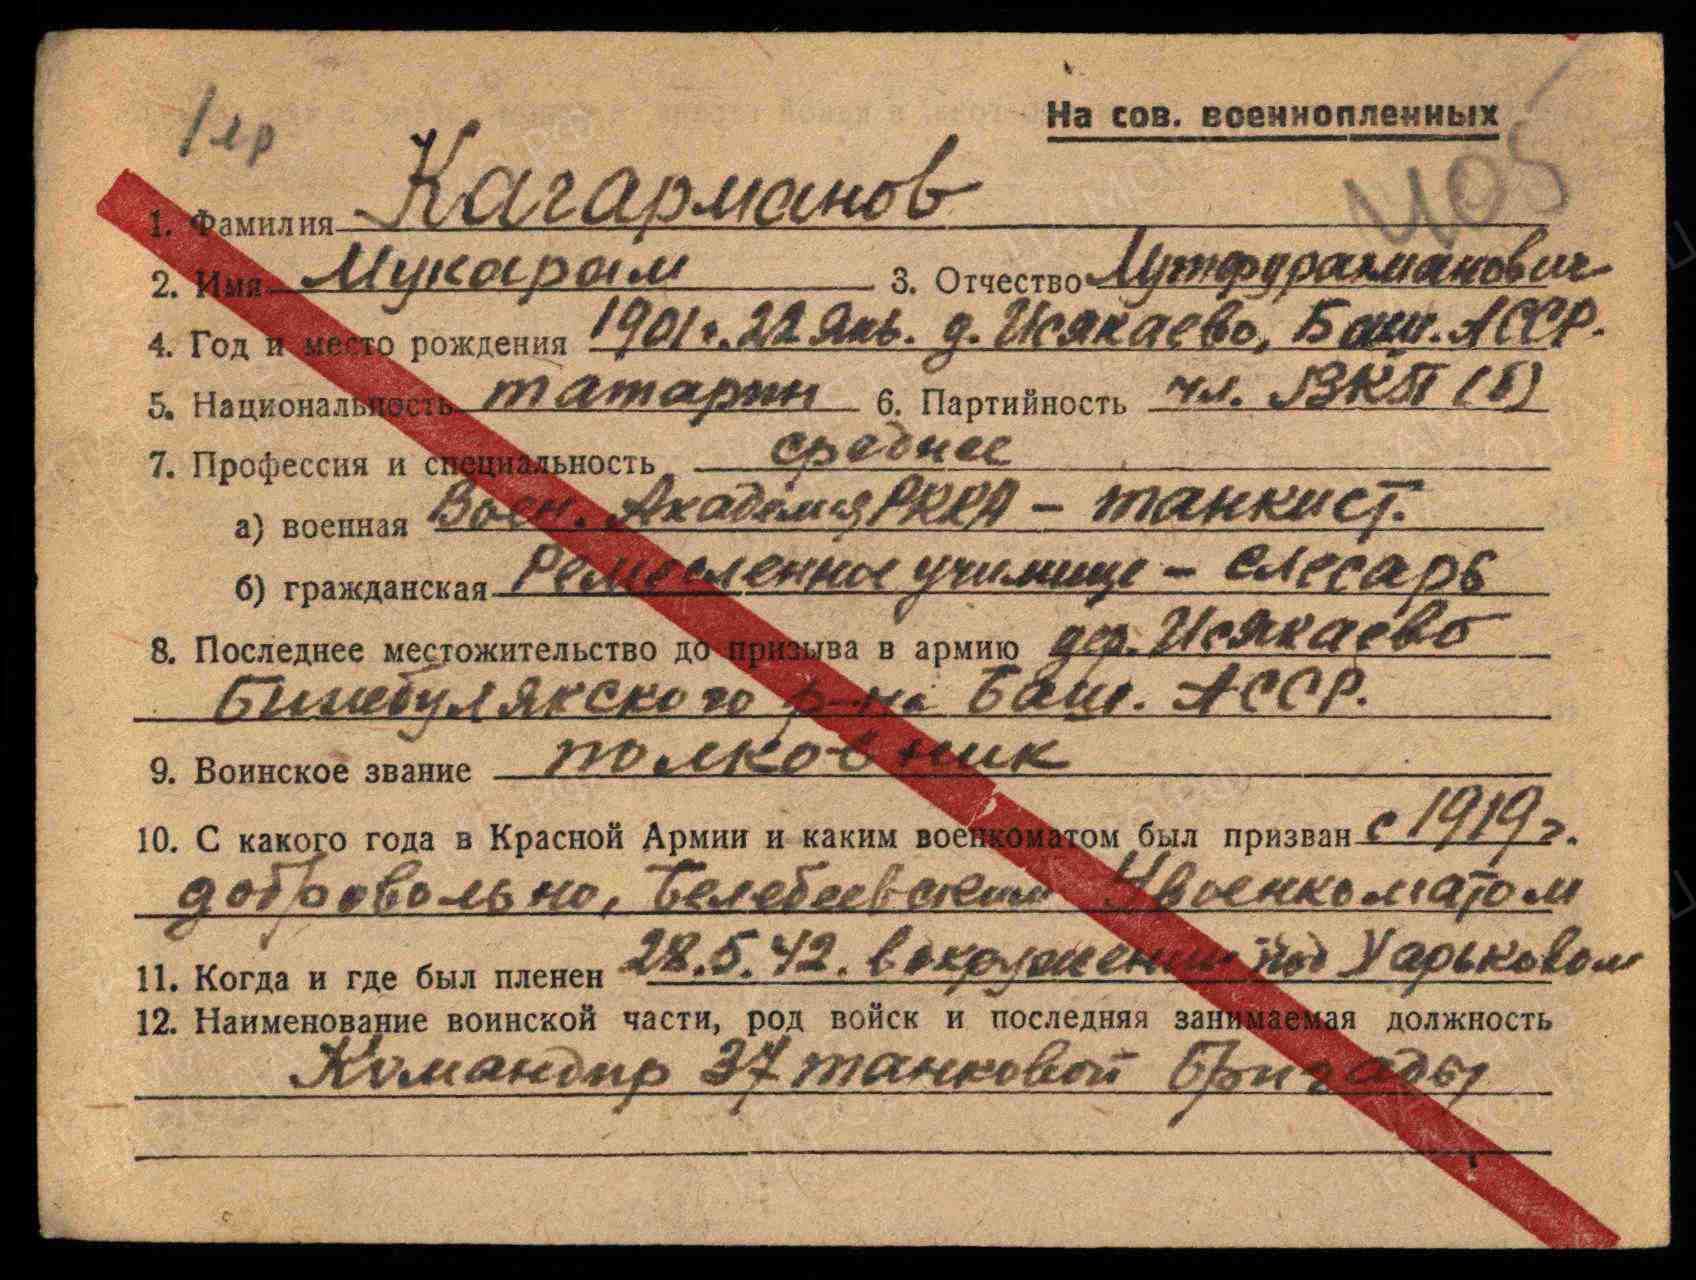 На сов. военнопленных
405
1. Фамилия Кагарманов
2. Имя Мукарам 3. Отчество Лутфурахманович
4. Год и место рождения 1901 г. 22 янв. д. Исякаево, Баш. АССР.
5. Национальность татарин 6. Партийность чл. ВКП(б)
7. Профессия и специальность среднее
а) военная Воен. Академия РККА – танкист.
б) гражданская Ремесленное училище – слесарь
8. Последнее местожительство до призыва в армию дер. Исякаево
Бижбулякского р-на Баш. АССР.
9. Воинское звание полковник
10. С какого года в Красной Армии и каким военкоматом был призван с 1919 г.
добровольно, Белебеевским военкоматом
11. Когда и где был пленен 28.5.42. в окружении под Харьковом
12. Наименование воинской части, род войск и последняя занимаемая должность
Командир 37 танковой бригады